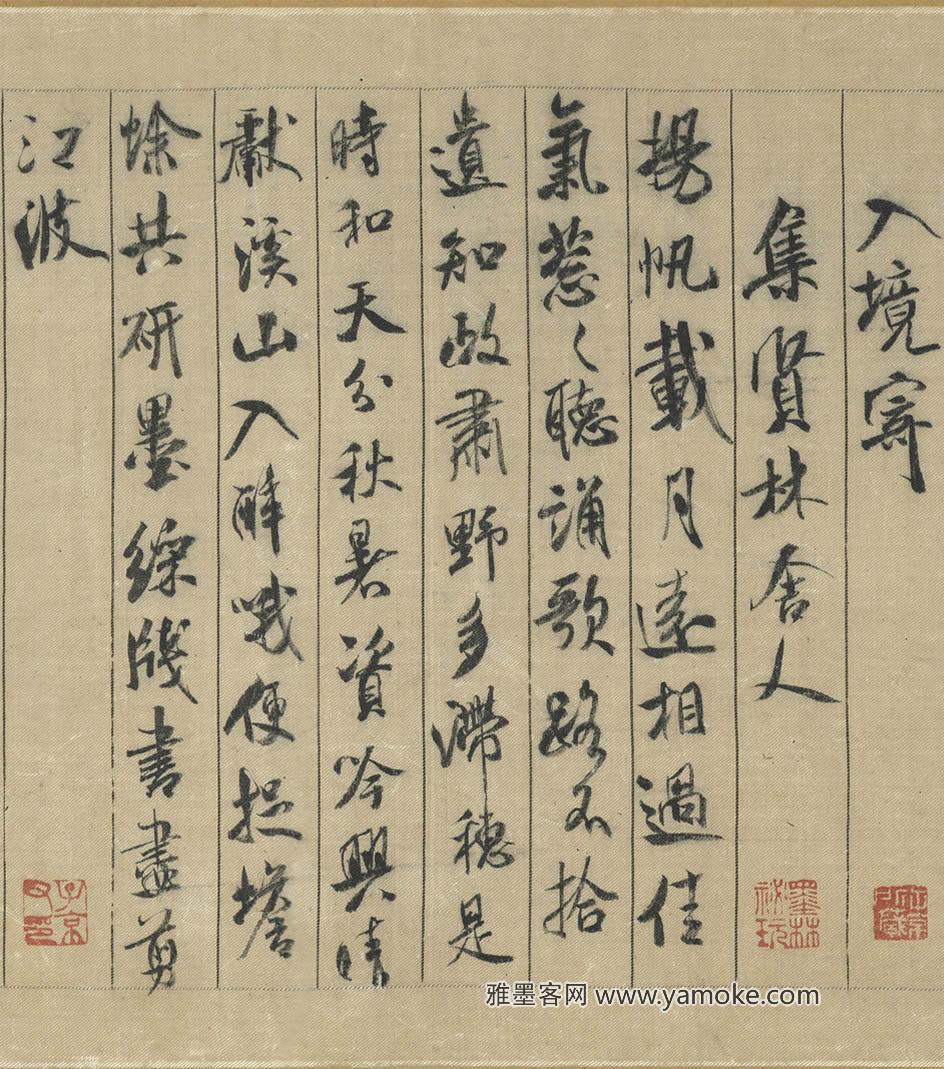 入境寄
集賢林舍人
揚帆載月遠相過佳
氣葱〻聽誦歌路不拾
遺知政肅野多滯穗是
時和天分秋暑資吟興晴
獻溪山入醉哦便捉蟾
蜍共研墨綵牋書盡剪
江波
墨林祕玩
子京父印
雅墨客网 www.yamoke.com